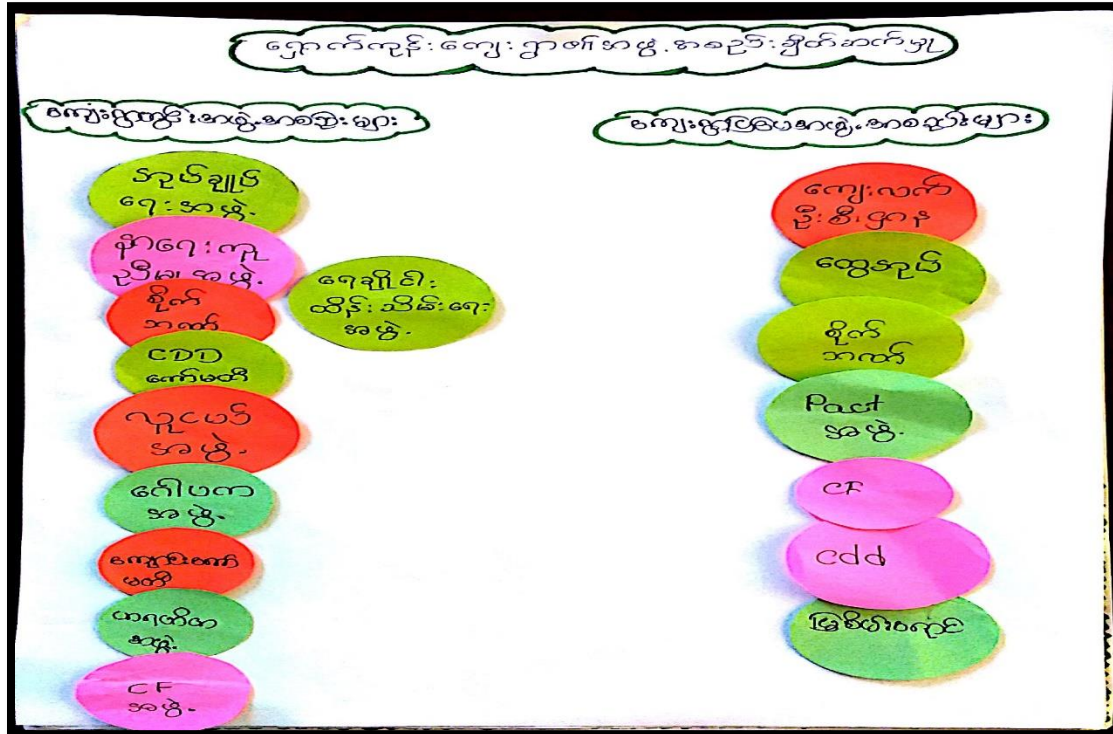 ရှောက်ကုန်းကျေးရွာ၏အဖွဲ့အစည်းချိတ်ဆက်မှု
ကျေးရွာတွင်းအဖွဲ့အစည်းများ
အုပ်ချုပ်
ရေးအဖွဲ့
နာရေးကူ
ညီမှုအဖွဲ့
စိုက်
ဘဏ်
CDD
ကော်မတီ
လူငယ်
အဖွဲ့
ဂေါပက
အဖွဲ့
ကျောင်းကော်
မတီ
အဖွဲ့
CF
အဖွဲ့
ရေချိုငါး
ထိန်းသိမ်းရေး
အဖွဲ့
ကျေးရွာပြင်ပအဖွဲ့အစည်းများ
ကျေးလက်
ဦးစီးဌာန
ထွေအုပ်
စိုက်
ဘဏ်
Pact
အဖွဲ့
CF
cdd
မြစိမ်းရောင်